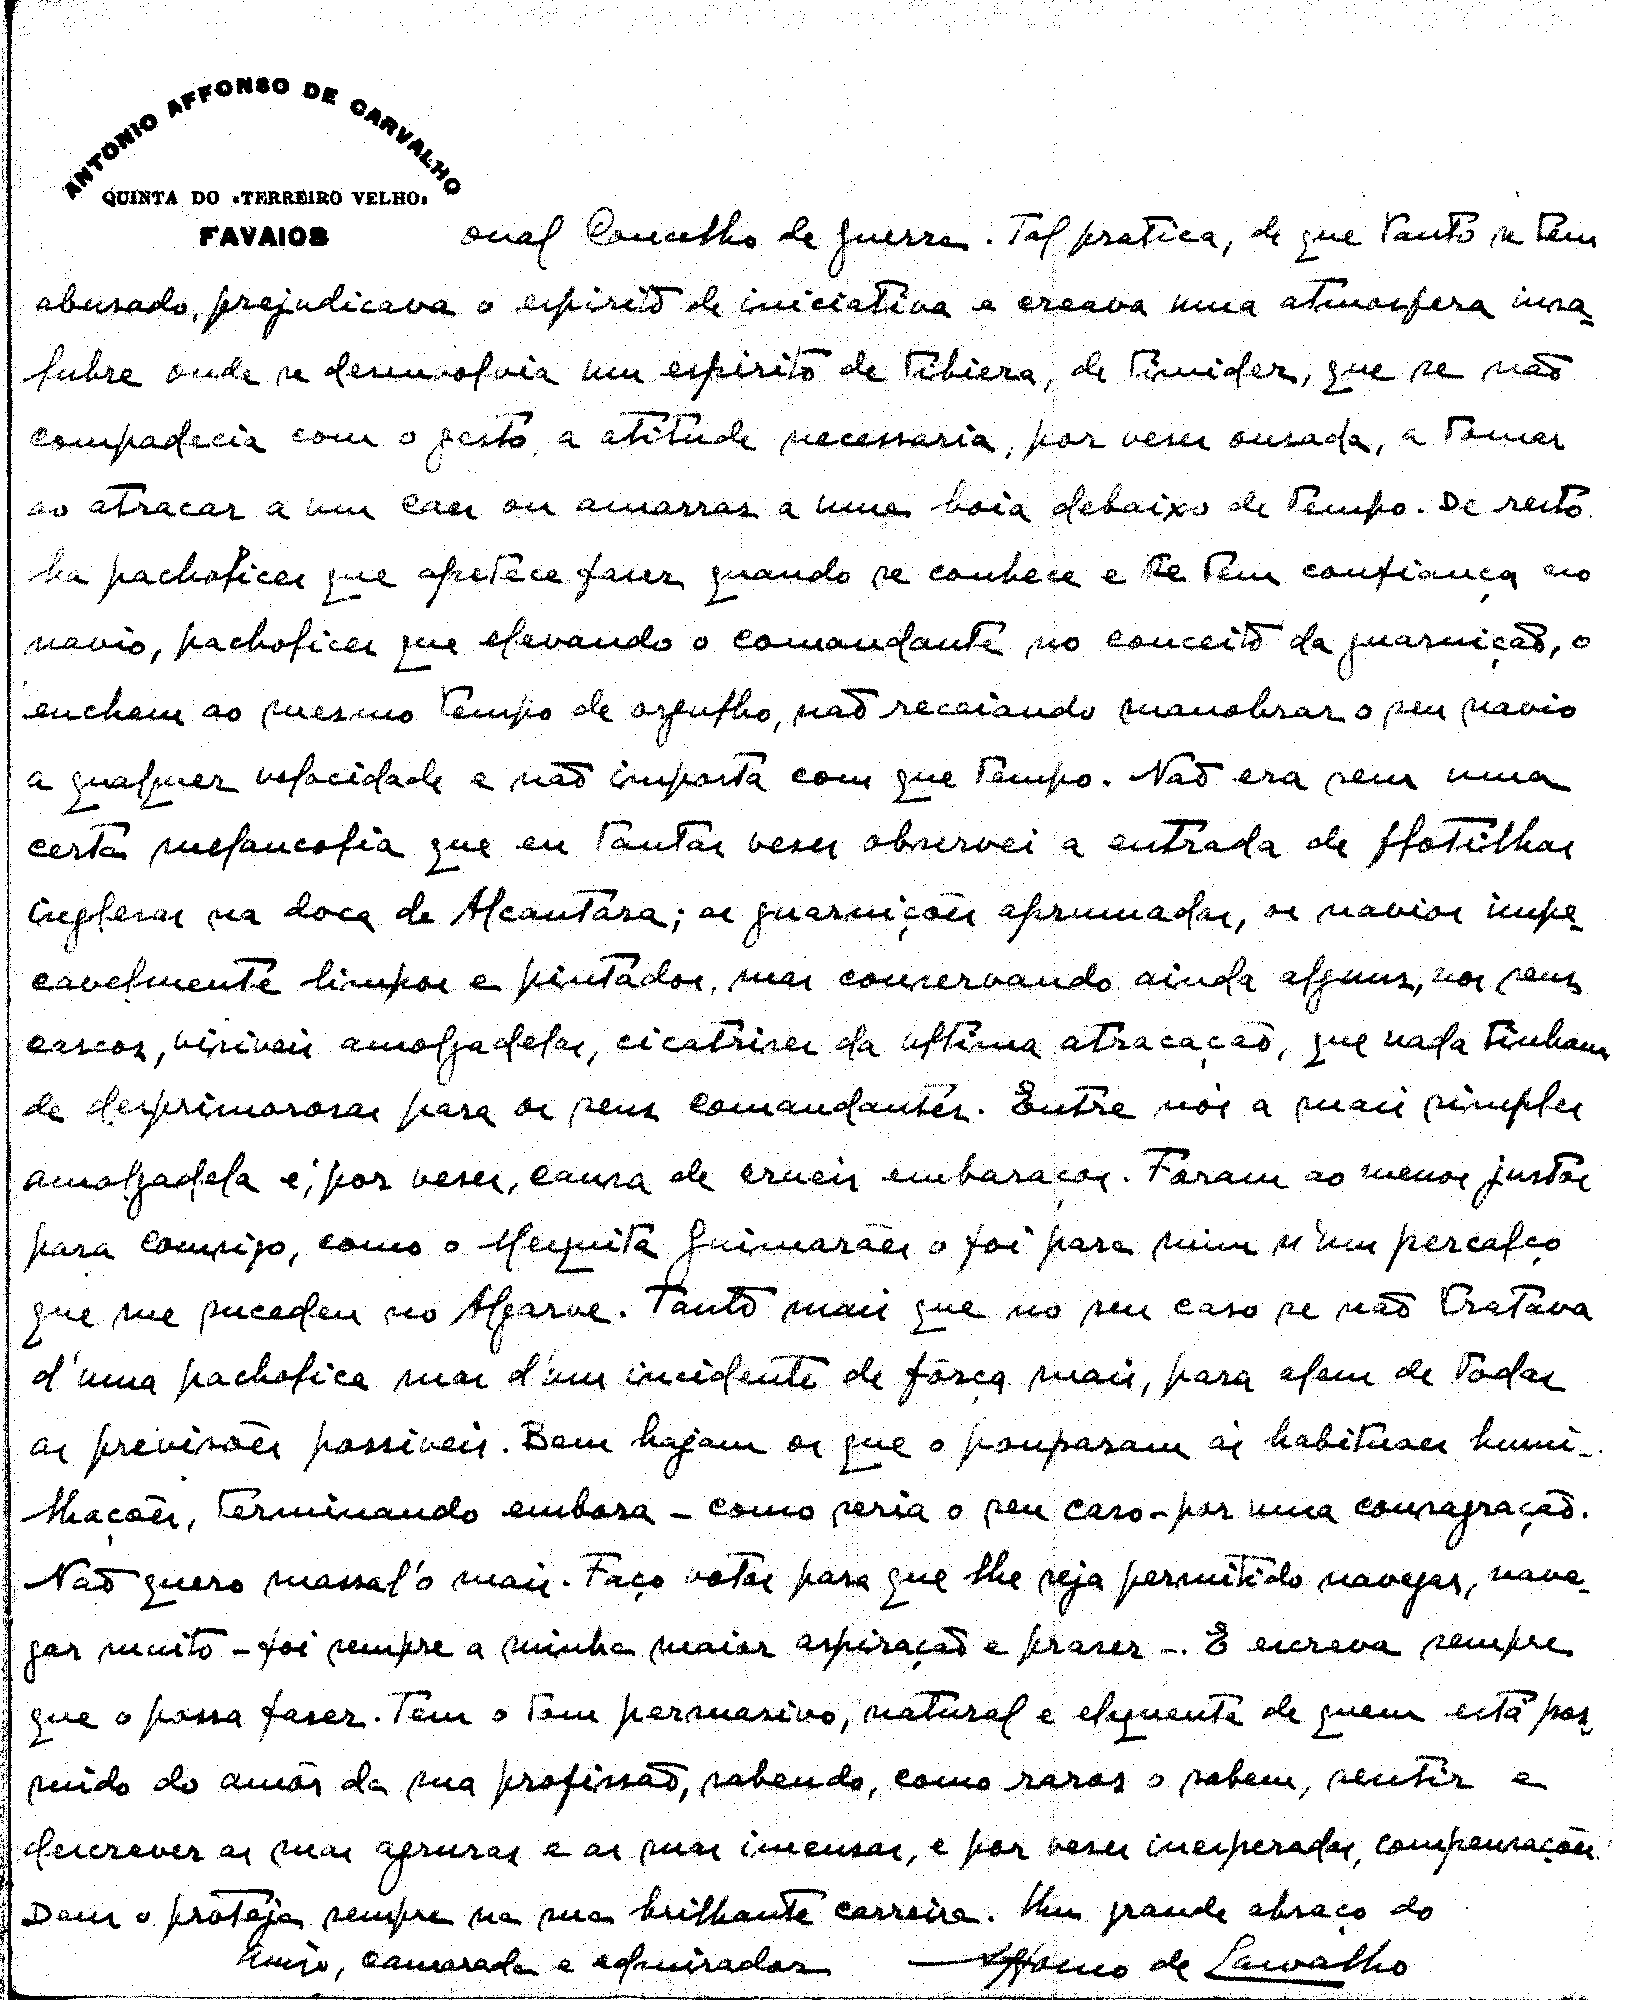 ANTONIO AFFONSO DE CARVALHO
QUINTA DO «TERREIRO VELHO»
FAVAIOS
onal Concelho de guerra. Tal pratica, de que tanto se tem
abusado, prejudicava o espirito de iniciativa e creava uma atmosfera insa-
lubre onde se desenvolvia um espirito de tibieza, de timidez, que se não
compadecia com o gesto, a atitude necessaria, por vezes ousada, a tomar
ao atracar a um caes ou amarrar a uma boia debaixo de tempo. De resto
ha pacholices que apetece faser quando se conhece e se tem confiança no
navio, pacholices que elevando o comandante no conceito da guarnição, o
enchem ao mesmo tempo de orgulho, não receiando manobrar o seu navio
a qualquer velocidade e não importa com que tempo. Não era sem uma
certa melancolia que eu tantas veses observei a entrada de flotilhas
inglesas na doca de Alcantara; as guarnições aprumadas, os navios impe-
cavelmente limpos e pintados, mas conservando ainda alguns, nos seus
cascos, visiveis amolgadelas, cicatrises da ultima atracação, que nada tinham
de desprimorosas para os seus comandantes. Entre nós a mais simples
amolgadela é, por veses, causa de crueis embaraços. Foram ao menos justos
para comsigo, como o Mesquita Guimarães o foi para mim n'um percalço
que me sucedeu no Algarve. Tanto mais que no seu caso se não tratava
d'uma pacholice mas d'um incidente de força mais, para alem de todas
as previsões possiveis. Bem hajam os que o pouparam ás habituaes humi-
lhações, terminando embora - como seria o seu caso - por uma consagração.
Não quero massal'o mais. Faço votos para que lhe seja permitido navegar, nave-
gar muito - foi sempre a minha maior aspiração e praser -. E escreva sempre
que o possa faser. Tem o tom persuasivo, natural e eloquente de quem está pos-
suido do amôr da sua profissão, sabendo, como raros o sabem, sentir e
descrever as suas agruras e as suas imensas, e por veses inesperadas, compensações.
Deus o proteja sempre na sua brilhante carreira. Um grande abraço do
Amigo, camarada e admirador Affonso de Carvalho